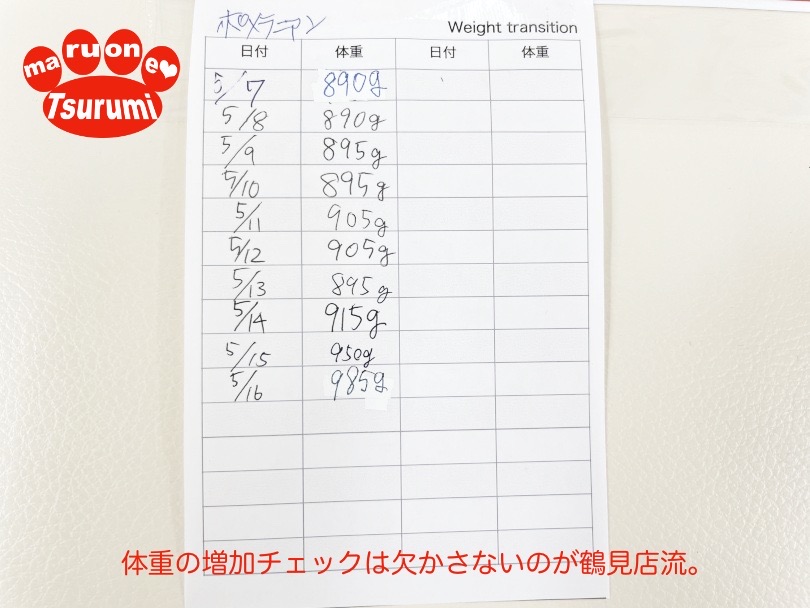 ポメラニアン
Weight transition
maruone
Tsurumi
日付 体重 日付 体重
5/7 890g
5/8 890g
5/9 895g
5/10 895g
5/11 905g
5/12 905g
5/13 895g
5/14 915g
5/15 950g
5/16 985g
体重の増加チェックは欠かさないのが鶴見店流。